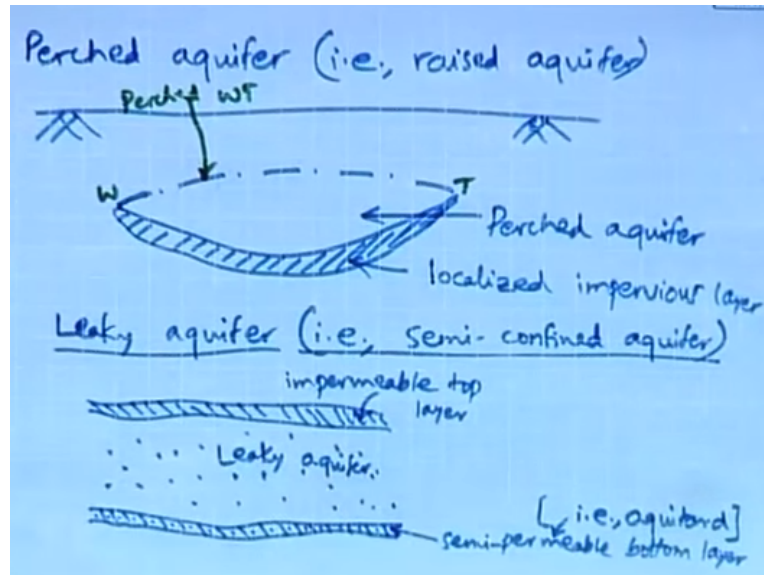 Perched aquifer (i.e., raised aquifer)
Perched WT
W
T
Perched aquifer
localized impervious layer
Leaky aquifer (i.e., semi-confined aquifer)
impermeable top
layer
Leaky aquifer
[i.e., aquitard]
semi-permeable bottom layer